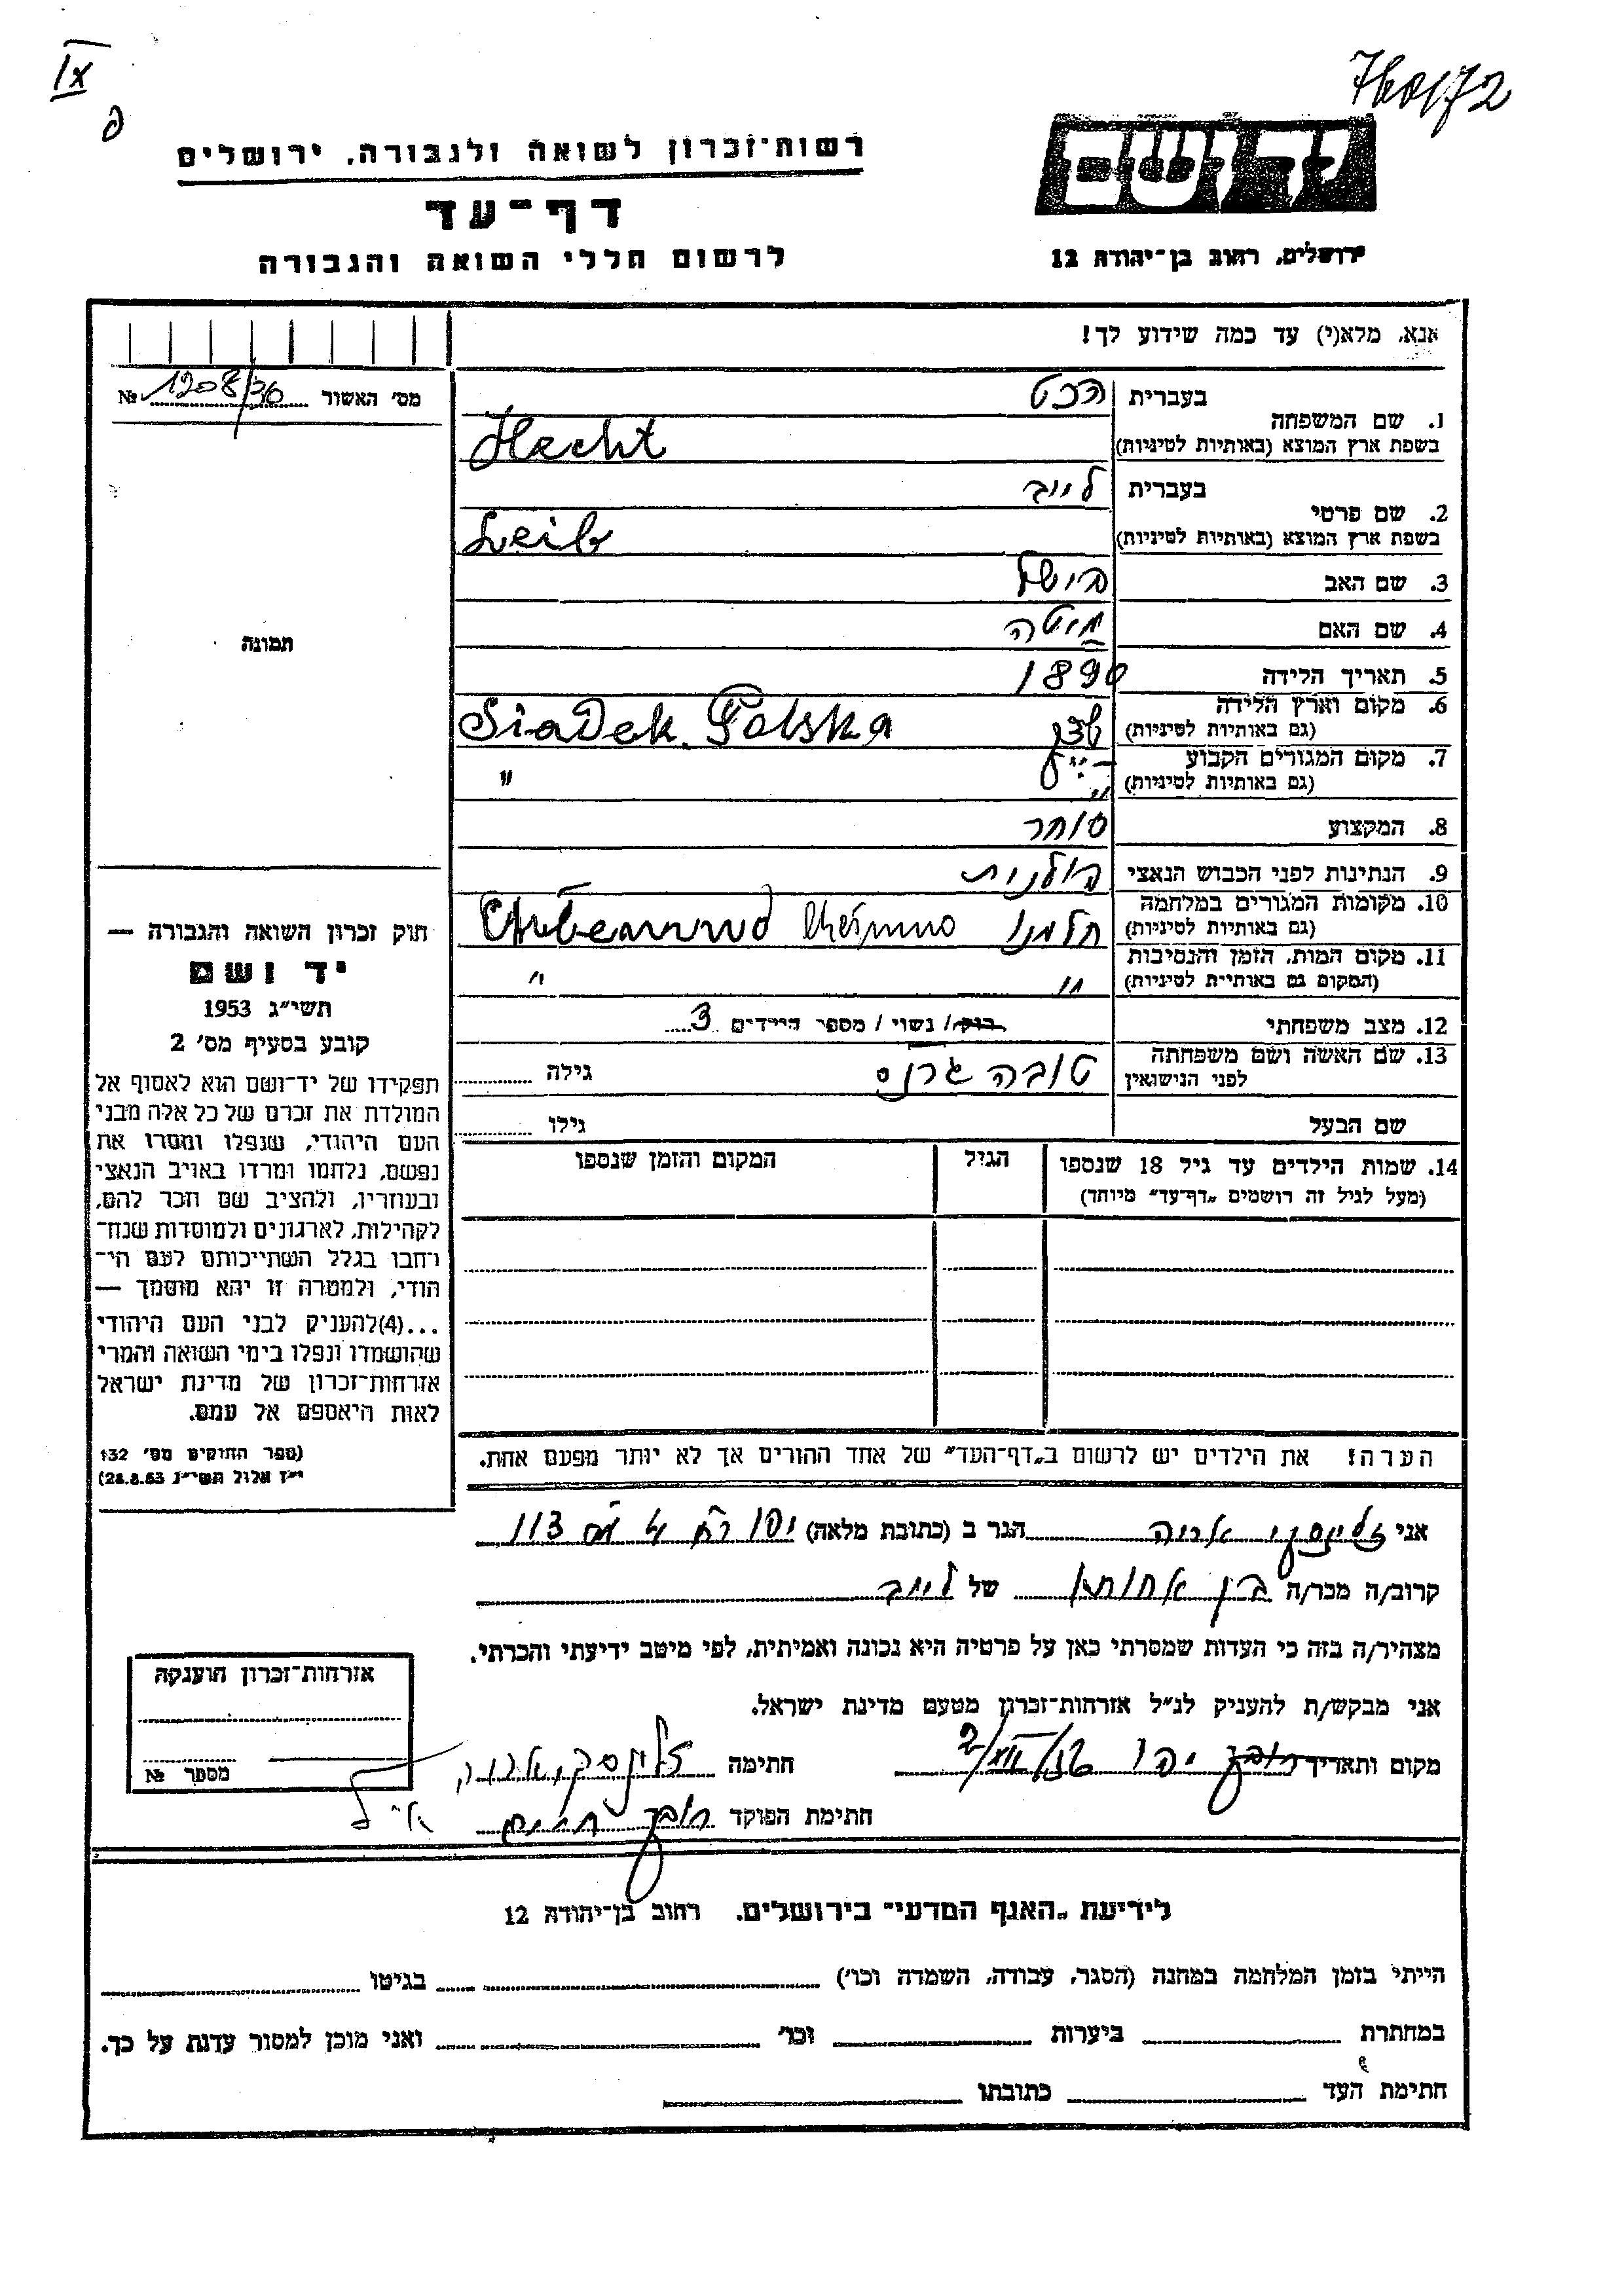 IX
רשות־זכרון לשואה ולגבורה, ירושלים
דף־עד
לרשום חללי השואה והגבורה
ירושלים, רחוב בן־יהודה 12
אנא, מלא(י) עד כמה שידוע לך!
מס׳ האשור № 1208/36
1. שם המשפחה
בעברית הכט
בשפת ארץ המוצא (באותיות לטיניות) Hecht
2. שם פרטי
בעברית לייב
בשפת ארץ המוצא (באותיות לטיניות) Leib
3. שם האב פישל
4. שם האם
תמונה
5. תאריך הלידה 1890
6. מקום וארץ הלידה
(גם באותיות לטיניות) Siadek. Polska
7. מקום המגורים הקבוע
(גם באותיות לטיניות) "
8. המקצוע סוחר
9. הנתינות לפני הכבוש הנאצי פולנית
10. מקומות המגורים במלחמה
(גם באותיות לטיניות) חלמנו
11. מקום המות, הזמן והנסיבות
(המקום גם באותיית לטיניות) " "
12. מצב משפחתי רוק/ נשוי / מספר הילדים 3
13. שם האשה ושם משפחתה
לפני הנישואין טובה גרנס גילה
שם הבעל גילו
14. שמות הילדים עד גיל 18 שנספו
(מעל לגיל זה רושמים „דף־עד״ מיוחד)
הגיל
המקום והזמן שנספו
הערה! את הילדים יש לרשום ב„דף־העד״ של אחד ההורים אך לא יותר מפעם אחת.
חוק זכרון השואה והגבורה —
יד ושם
תשי״ג 1953
קובע בסעיף מס׳ 2
תפקידו של יד־ושם הוא לאסוף אל
המולדת את זכרם של כל אלה מבני
העם היהודי, שנפלו ומסרו את
נפשם, נלחמו ומרדו באויב הנאצי
ובעוזריו, ולהציב שם וזכר להם,
לקהילות, לארגונים ולמוסדות שנח־
רחבו בגלל השתייכותם לעם הי־
הודי, ולמטרה זו יהא מוסמך —
...(4)להעניק לבני העם היהודי
שהושמדו ונפלו בימי השואה והמרי
אזרחות־זכרון של מדינת ישראל
לאות היאספם אל עמם.
(ספר החוקים מס׳ 132
י״ז אלול תשי״ג 28.8.53)
אני זלינסקי אריה הגר ב (כתובת מלאה) יפו
קרוב/ה מכר/ה בן אחותו של לייב
מצהיר/ה בזה כי העדות שמסרתי כאן על פרטיה היא נכונה ואמיתית, לפי מיטב ידיעתי והכרתי.
אני מבקש/ת להעניק לנ״ל אזרחות־זכרון מטעם מדינת ישראל.
מקום ותאריך יפו חתימה זלינסקי אריה
חתימת הפוקד
אזרחות־זכרון הוענקה
מספר №
לידיעת „האגף המדעי״ בירושלים, רחוב בן־יהודה 12
הייתי בזמן המלחמה במחנה (הסגר, עבודה, השמדה וכו׳) בגיטו
במחתרת ביערות וכו׳ ואני מוכן למסור עדות על כך.
חתימת העד כתובתו